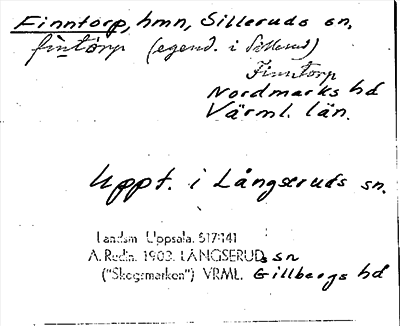 Finntorp, hmn, Silleruds sn,
fìntòrp (egend. i Sillerud)
Finntorp
Nordmarks hd
Värml. län.
Uppt. i Långseruds sn.
Landsm Uppsala. 517:141
A. Redin. 1902. LÅNGSERUDS sn
("Skogsmarken") VRML. Gillbergs hd